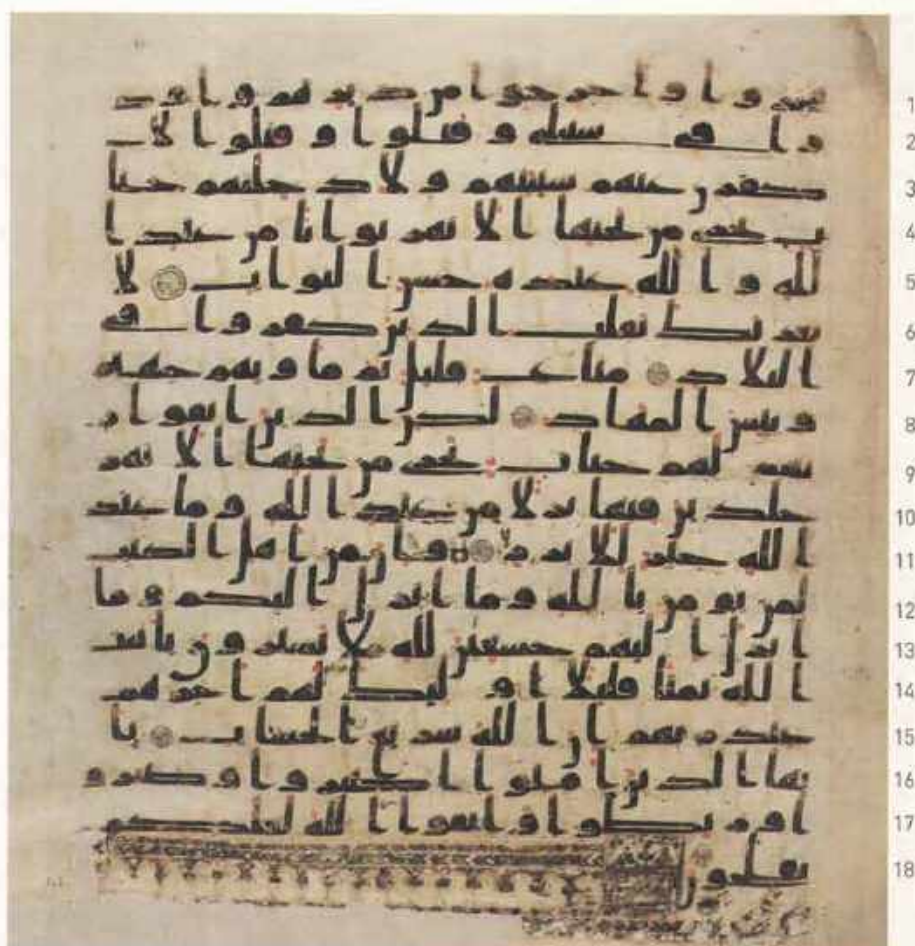 هجروا واخرجوا من ديرهم واوذ 1
وا في سبيلي وقتلوا وقتلوا لا 2
كفرن عنهم سيتهم ولا دخلنهم جنا 3
ت تجري من تحتها الانهر ثوابا من عند ا 4
لله والله عنده حسن الثواب لا 5
يغرنك تقلب الذين كفروا في 6
البلاد متاع قليل ثم ماويهم جهنم 7
وبيس المهاد لكن الذين اتقوا ر 8
بهم لهم جنات تجري من تحتها الانهر 9
خلدين فيها نزلا من عند الله وما عند 10
الله خير للابرار وان من اهل الكتب 11
لمن يومن بالله وما انزل اليكم وما 12
انزل اليهم خشعين لله لا يشترون بايت 13
الله ثمنا قليلا اوليك لهم اجرهم 14
عند ربهم ان الله سريع الحساب يا 15
يها الذين امنوا اصبروا وصابروا و 16
رابطوا واتقوا الله لعلكم 17
تفلحون 18